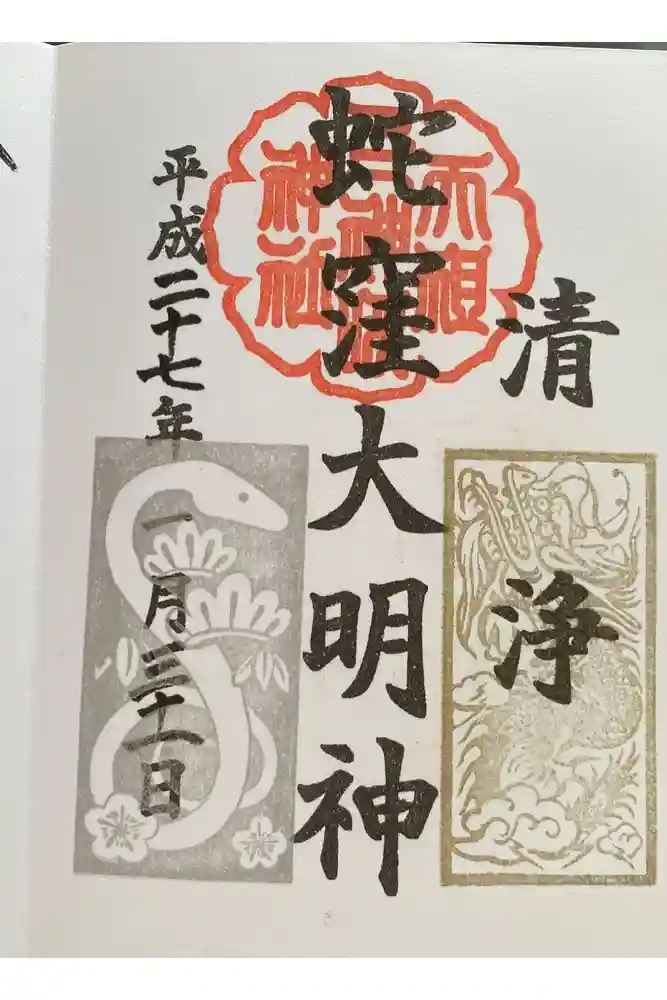 清浄
蛇窪大明神
天祖
神社
平成二十七年一月三十一日